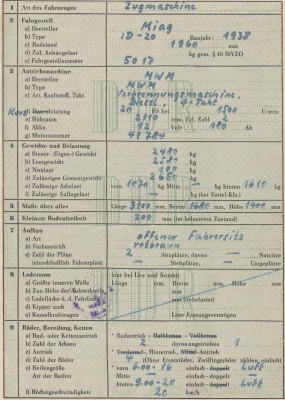 1 Art des Fahrzeuges Zugmaschine
2 Fahrgestell
a) Hersteller Miag
b) Type LD-20 Baujahr: 1938
c) Radstand 1960 mm
d) Zul. Anhängelast kg gem. § 42 StVZO
e) Fahrgestellnummer 5017
3 Antriebsmaschine
a) Hersteller MWM
b) Type MWM
c) Art, Kraftstoff, Takt Verbrennungsmaschine.
Diesel, 4-Takt
20 PS bei 1500 U/min
e) Hubraum 2110 ccm, Zyl. Zahl 2
f) Akku 12 Volt 180 Ah
g) Motornummer
4 Gewichte und Belastung
a) Steuer- (Eigen-) Gewicht 2480 kg
b) Leergewicht 2580 kg
c) Nutzlast 100 kg
d) Zulässiges Gesamtgewicht 2680 kg
e) Zulässige Achslast vorn 1070 kg Mitte — kg hinten 1610 kg
f) Zulässige Auflagelast kg (bei Sattel-Kfz.)
5 Maße über alles Länge 3100 mm, Breite 1680 mm, Höhe 1900 mm
6 Kleinste Bodenfreiheit 200 mm (im belasteten Zustand)
7 Aufbau
a) Art offener Fahrersitz
b) Farbanstrich rotbraun
c) Zahl der Plätze 2 Sitzplätze, davon — Notsitze
(einschließlich Fahrerplatz) — Stehplätze, — Liegeplätze
8 Laderaum (nur bei Lkw und Kombi)
a) Größte inneren Maße Länge mm, Breite mm, Höhe mm
mm
mm (unbelastet)
d) Kipper nach
e) Kesselkraftwagen Liter Fassungsvermögen
9 Räder, Bereifung, Ketten
a) Rad- oder Kettenantrieb Radantrieb - Halbketten - Vollketten
b) Zahl der Achsen 2 davon angetrieben 1
c) Antrieb Vorderrad-, Hinterrad-, Allrad-Antrieb
d) Zahl der Räder 4 (Ohne Ersatzräder, Zwillingsräder zählen einfach)
e) Reifengröße vorn 6.00-16 einfach - doppelt Luft
Art der Reifen Mitte — einfach - doppelt —
hinten 9.00-20 einfach - doppelt Luft
f) Höchstgeschwindigkeit 20 km/h